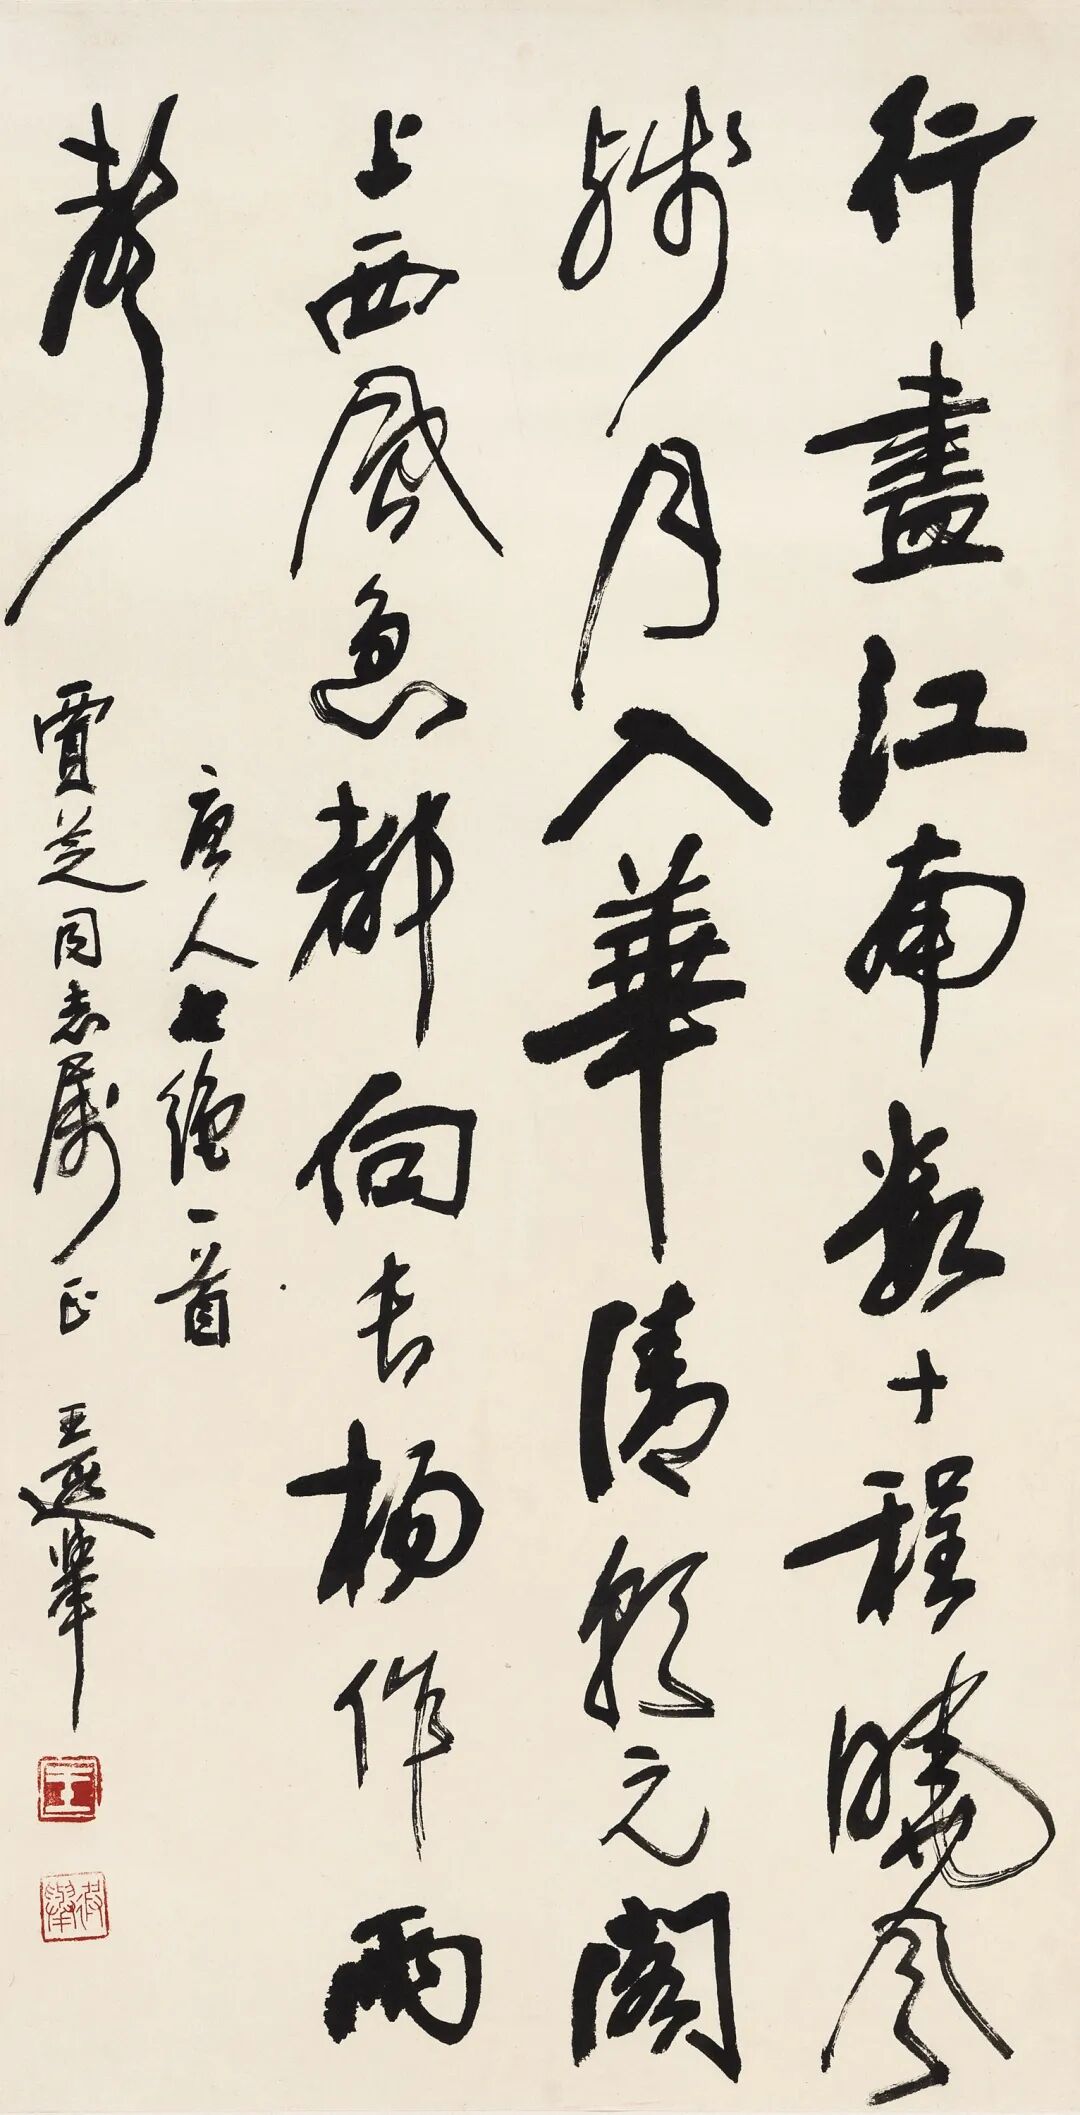 行盡江南數十程曉風
殘月入華清朝元閣
上西風急都向長楊作雨
聲
唐人七絕一首
賈芝同志屬正 王遐舉
王
遐舉